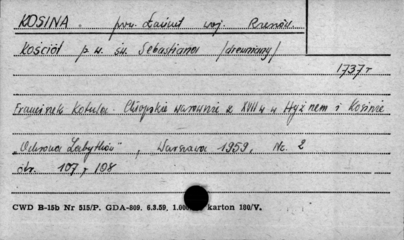 KOSINA. pow. Łańcut woj. Rzeszów
Kościół p.w. św. Sebastiana /drewniany/
1737 r
Franciszek Kotula: Chłopskie warownie z XVII w w Hyżnem i Kosinie
„Ochrona Zabytków", Warszawa 1959, No. 2
str. 107 i 108
CWD B-15b Nr 515/P. GDA-809. 6.3.59, 1.000 karton 180/V.